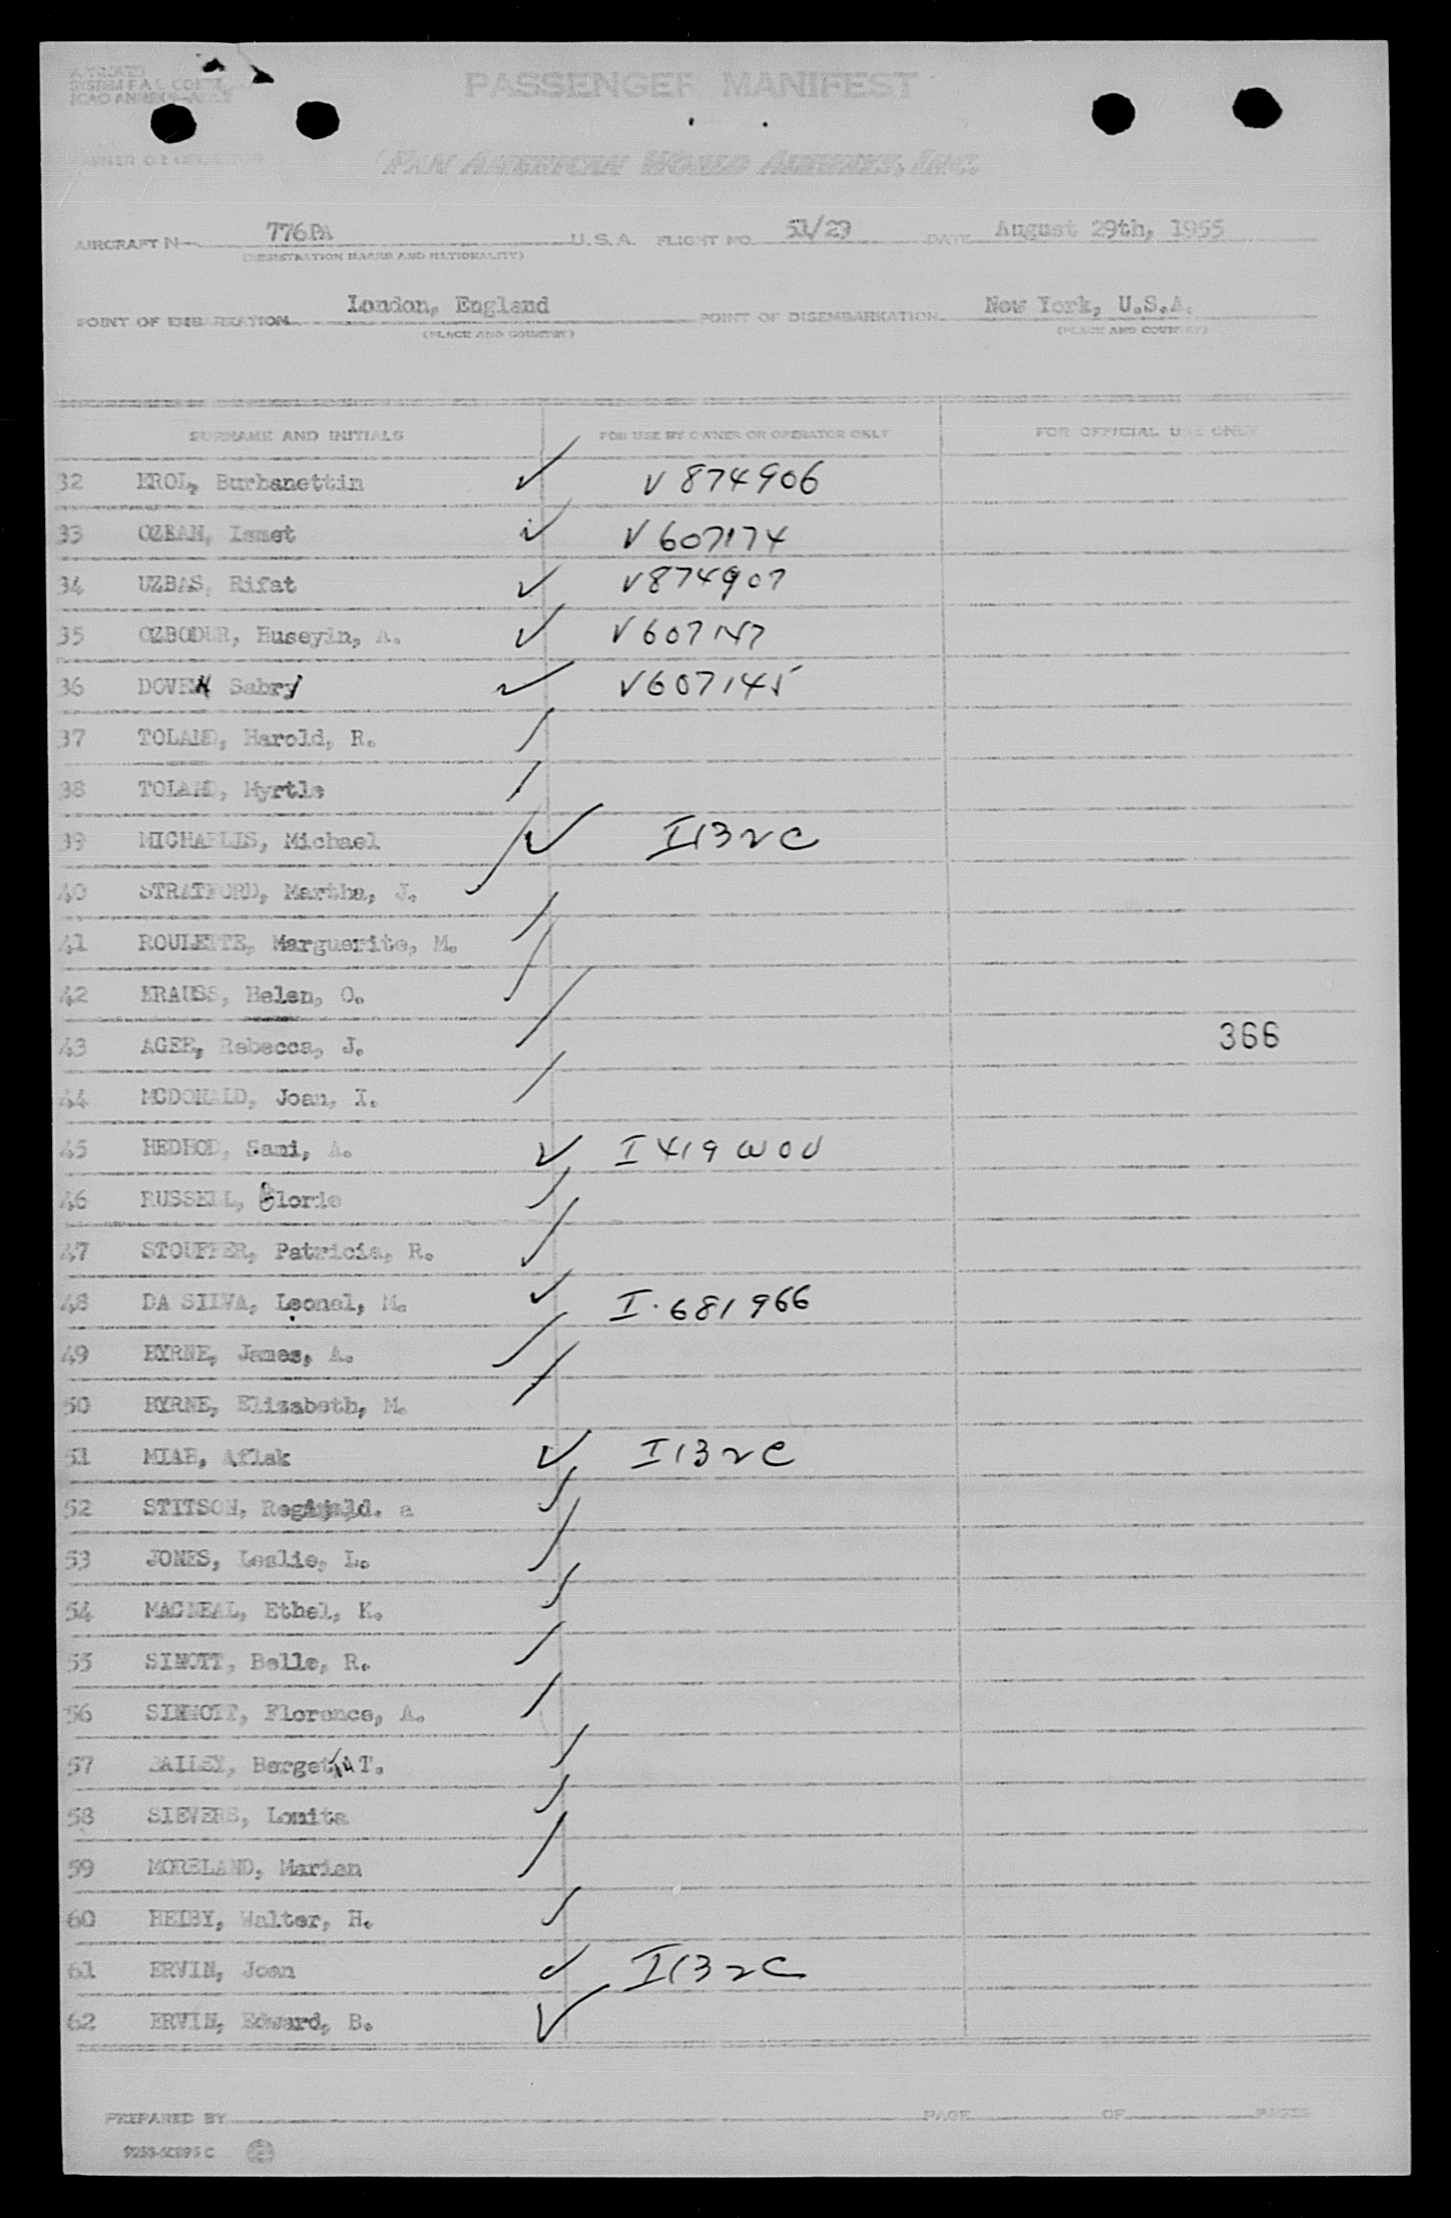 PASSENGER MANIFEST
PAN AMERICAN WORLD AIRWAYS, INC.
AIRCRAFT N 776PA U.S.A. FLIGHT NO. 51/29 DATE August 29th, 1955
(REGISTRATION MARKS AND NATIONALITY)
POINT OF EMBARKATION London, England POINT OF DISEMBARKATION New York, U.S.A.
(PLACE AND COUNTRY) (PLACE AND COUNTRY)
SURNAME AND INITIALS FOR USE BY OWNER OR OPERATOR ONLY FOR OFFICIAL USE ONLY
32 EROL, Burbanettin V 874906
33 OZBAN, Ismet V 607174
34 UZBAS, Rifat V874907
35 OZBODUR, Huseyin, A. V607147
36 DOVEN Sabry V607145
37 TOLAND, Harold, R.
38 TOLAND, Myrtle
39 MICHAELIS, Michael I132C
40 STRATFORD, Martha, J.
41 ROULETTE, Marguerite, M.
42 KRAUSS, Helen, O.
43 AGER, Rebecca, J. 366
44 MCDONALD, Joan, I.
45 HEDHOD, Sami, A. I 419 WOU
46 RUSSELL, Glorie
47 STOUFFER, Patricia, R.
48 DA SILVA, Leonel, M. I-681966
49 BYRNE, James, A.
50 BYRNE, Elizabeth, M.
51 MIAH, Aflak I132C
52 STITSON, Reginald. a
53 JONES, Leslie, L.
54 MACNEAL, Ethel, K.
55 SINOTT, Belle, R.
56 SINNOTT, Florence, A.
57 BAILEY, Berget T.
58 SIEVERS, Lonita
59 MORELAND, Marian
60 HEIBY, Walter, H.
61 ERVIN, Joan I132C
62 ERVIN, Edward, B.
PREPARED BY PAGE OF PAGES